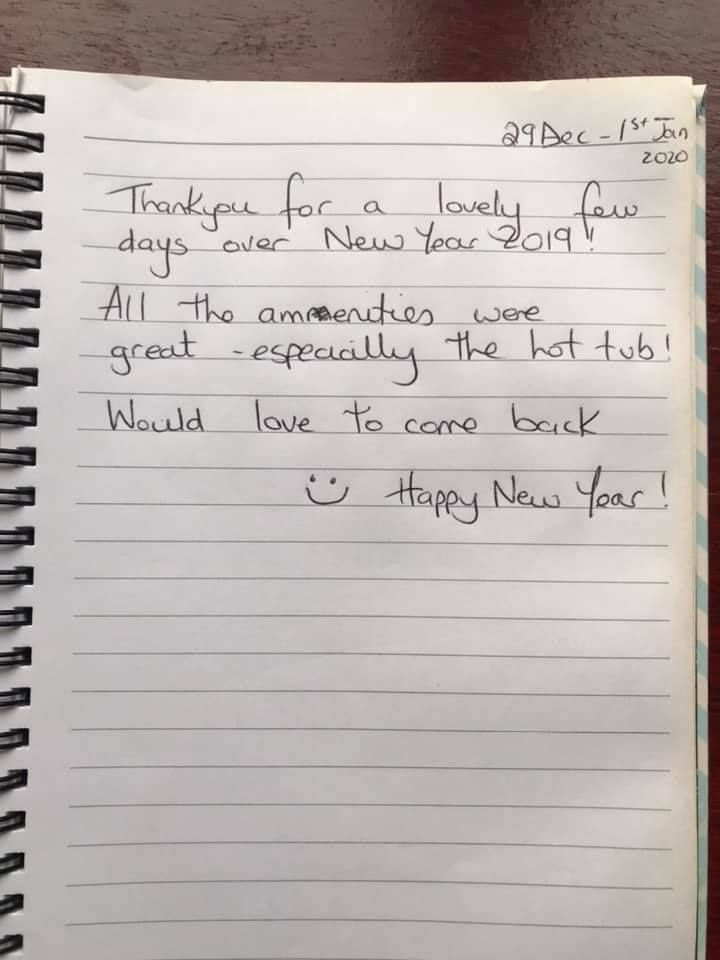 29 Dec - 1st Jan
2020
Thankyou for a lovely few
days over New Year 2019!
All the ammenities were
great - especially the hot tub!
Would love to come back
Happy New Year!